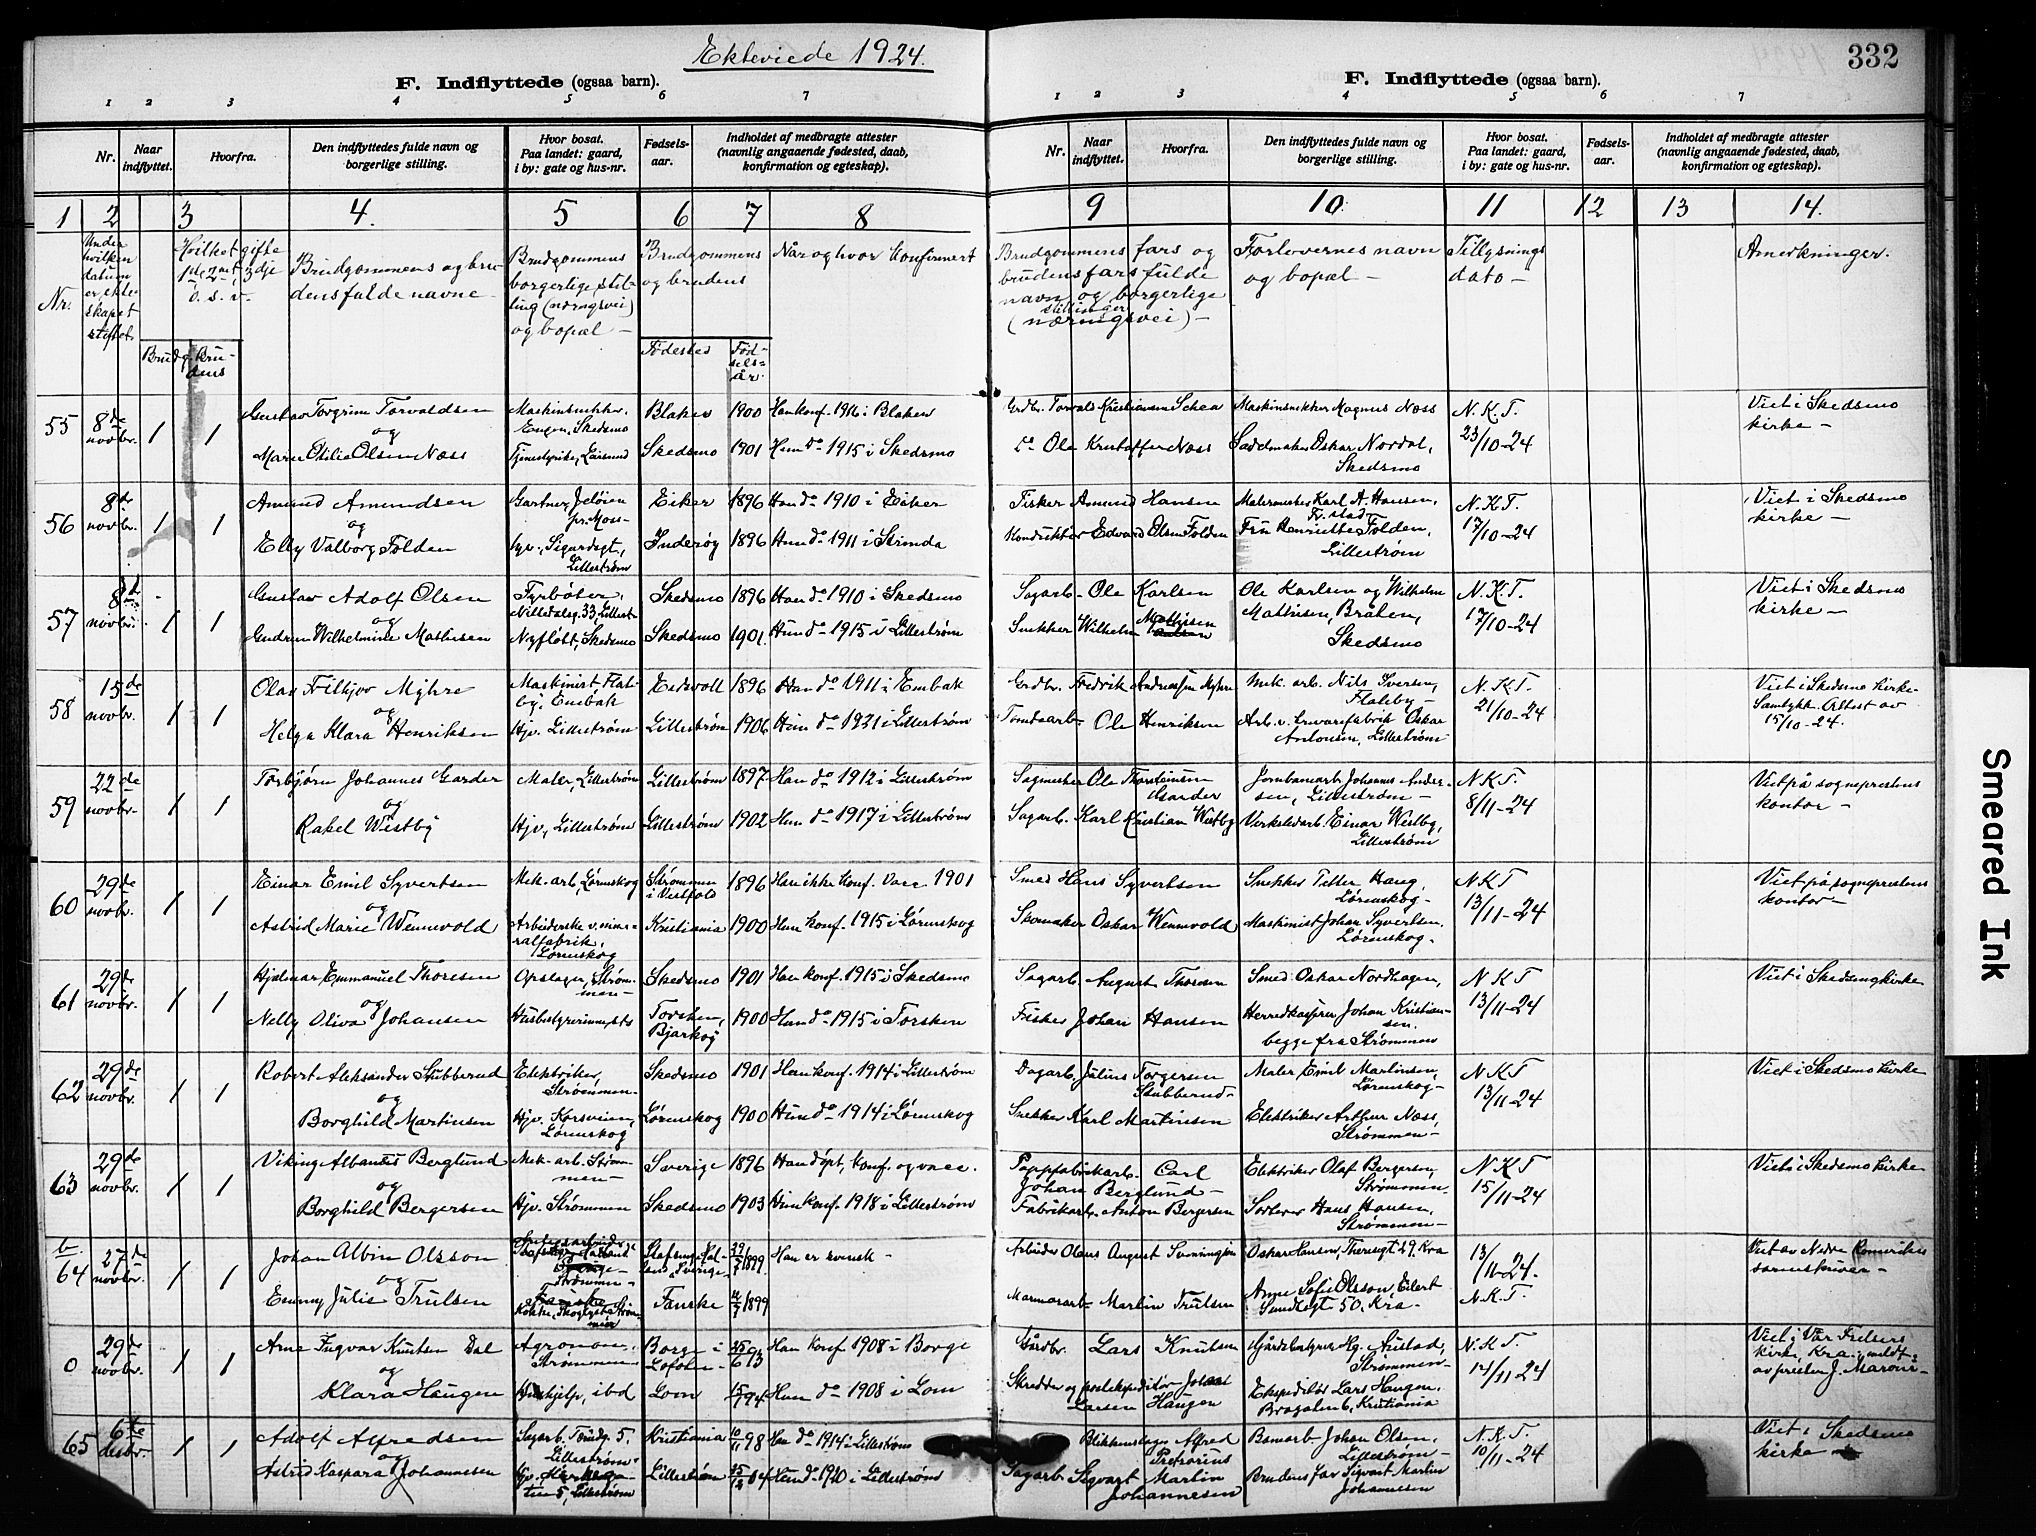 Ekteviede 1924.
332
F. Indflyttede (ogsaa barn).
1 2 3 4 5 6 7
Nr.
Naar indflyttet.
Hvorfra.
Den indflyttedes fulde navn og borgerlige stilling.
Hvor bosat. Paa landet: gaard, i by: gate og hus-nr.
Fødsels-aar.
Indholdet af medbragte attester (navnlig angaaende fødested, daab, konfirmation og egteskap).
F. Indflyttede (ogsaa barn).
1 2 3 4 5 6 7
Nr.
Naar indflyttet.
Hvorfra.
Den indflyttedes fulde navn og borgerlige stilling.
Hvor bosat. Paa landet: gaard, i by: gate og hus-nr.
Fødsels-aar.
Indholdet af medbragte attester (navnlig angaaende fødested, daab, konfirmation og egteskap).
1 2 3 4. 5 6 7 8 9 10 11 12 13 14.
Nr.
Under hvilken datum er ekteskapet stiftet.
Hvilket gifte 1ste, 2net, 3dje o.s.v.
Brudg. Brudens
Brudgommens og brudens fulde navne
Brudgommens borgerlige stilling (næringsvei) og bopæl –
Brudgommens og brudens
Fødested
Fødselsår.
Når og hvor Konfirmert
Brudgommens fars og brudens fars fulde navn og borgerlige stillinger (næringsvei) –
Forlovernes navn og bopæl –
Tillysnings dato –
Anmerkninger.
55 8de novbr. 1 1 Gustav Torgrim Torvaldsen Maskinsnekker, Engen, Skedsmo Blaker 1900 Han konf. 1916 i Blaker Grdbr. Torvald Kristiansen Maskinsnekker Magnus Næss N.K.T. 23/10-24 Viet i Skedsmo kirke –
og
Olsen Næss Skedsmo 1901 Hun do 1915 i Skedsmo do Ole Kristoffer Næss Sadelmaker Oskar Nordal, Skedsmo
56 8de novbr. 1 1 Amund Amundsen Gartner, Jeløien pr. Moss – Eiker 1896 Han do 1910 i Eiker Fisker Amund Hansen Malermester Karl A. Hansen, N.K.T. 17/10-24 Viet i Skedsmo kirke –
og
Elly Valborg Folden Sigurdsgt, Lillestrøm Inderøy 1896 Hun do 1911 i Strinda Konduktør Edvard Olsen Folden Fru Henriette Folden, Lillestrøm
57 8de novbr. 1 1 Gustav Adolf Olsen Fyrbøter, Nittedalsg. 33, Lillest. Skedsmo 1896 Han do 1910 i Skedsmo Sagarb. Ole Karlsen Ole Karlsen og Wilhelm Mathisen, Bråten, Skedsmo N.K.T. 17/10-24 Viet i Skedsmo kirke –
og
Gudrun Wilhelmine Mathisen Skedsmo Skedsmo 1901 Hun do 1915 i Lillestrøm Snekker Wilhelm Mathisen
58 15de novbr. 1 1 Olav Fritjov Myhre Maskinist, Enebak Eidsvoll 1896 Han do 1911 i Enebak Grdbr. Fredrik Andreassen Myhre Mek. arb. Nils Iversen, Flateby – N.K.T. 21/10-24 Viet i Skedsmo kirke – Samtykk. Attest av 15/10-24.
og
Helga Klara Henriksen Hjv. Lillestrøm Lillestrøm 1906 Hun do 1921 i Lillestrøm Tomtearb. Ole Henriksen Arb. v. Oskar Antonsen, Lillestrøm
59 22de novbr. 1 1 Torbjørn Johannes Garder Maler, Lillestrøm Lillestrøm 1897 Han do 1912 i Lillestrøm Sagmester Ole Thorsteinsen Garder Jernbanearb. Johannes Andersen, Lillestrøm – N.K.T. 8/11-24 Viet på sogneprestens kontor –
og
Rakel Westby Hjv, Lillestrøm Lillestrøm 1902 Hun do 1917 i Lillestrøm Sagarb. Karl Kristian Westby Verkstedarb. Einar Westby, Lillestrøm
60 29de novbr. 1 1 Einar Emil Syvertsen Mek. arb, Lørenskog Strømmen i Vestfold 1896 Han ikke konf. Vacc. 1901 Smed Hans Syvertsen Snekker Petter Haug, Lørenskog – N.K.T 13/11-24 Viet på sogneprestens kontor –
og
Astrid Marie Wennevold Arbeiderske v. mineralfabrik, Lørenskog Kristiania 1900 Hun konf. 1915 i Lørenskog Skomaker Oskar Wennevold Maskinist Johan Syvertsen, Lørenskog –
61 29de novbr. 1 1 Hjalmar Emmanuel Thoresen Opslager, Strømmen – Skedsmo 1901 Han konf. 1915 i Skedsmo Sagarb. August Thoresen Smed Oskar Nordhagen, N.K.T 13/11-24 Viet i Skedsmo kirke
og
Nelly Oliva Johansen Husbestyrerinne, sts Torsken, Bjarkøy 1900 Hun do 1915 i Torsken Fisker Johan Hansen Herredskasserer Johan Kristiansen. begge fra Strømmen
62 29de novbr. 1 1 Robert Aleksander Stubberud Elektriker, Strømmen – Skedsmo 1901 Han konf. 1914 i Lillestrøm Dagarb. Julius Torgersen Stubberud – Maler Emil Martinsen, Lørenskog – N.K.T 13/11-24 Viet i Skedsmo kirke
og
Borghild Martinsen Hjv. Lørenskog Lørenskog 1900 Hun do 1914 i Lørenskog Snekker Karl Martinsen Elektriker Arthur Næss, Strømmen –
63 29de novbr. 1 1 Viking Albanus Berglund Mek. arb. Strømmen – Sverige 1896 Han døpt, konf. og vacc. Pappfabrikarb. Carl Johan Berglund – Elektriker Olaf Bergersen, Strømmen. N.K.T 15/11-24 Viet i Skedsmo kirke
og
Borghild Bergersen Hjv. Strømmen Skedsmo 1903 Hun konf. 1918 i Lillestrøm Fabrikarb. Anton Bergersen Sorterer Hans Hansen, Strømmen –
b
64 27de novbr. 1 1 Johan Albin Olsson Strømmen – Sverige – 1899 Han er svensk – Arbeider Olaus August Oskar Hansen, Theresegt 29. Kra 13/11-24. Viet av Nedre Romerikes sorenskriver –
og
Emmy Julie Trulsen Fauske 1899 Marmorarb. Martin Trulsen Anne Sofie Olsson, Eilert Sundtsgt 50. Kra. N.K.T.
0 29de novbr. 1 1 Arne Ingvar Knutsen Dal Agronom, Strømmen – Borge i Lofoten – Han konf. 1908 i Borge Gårdbr. Lars Knutsen Gårdsbestyrer Hg. Austad, Strømmen – N.K.T. 14/11-24 Viet i Vår Frelsers kirke, Kra, meldt av presten J. Maroni
og
Klara Haugen Hushjelp, ibd Lom 15/5 94 Hun do 1908 i Lom Skredder og postekspeditør Johan Larsen Haugen Ekspeditør Lars Haugen, Kristiania
65 6te desbr. 1 1 Adolf Alfredsen Sagarb. 5, Lillestrøm. Kristiania 10/11 98 Han do 1914 i Lillestrøm Blikkenslager Alfred Pretorius Banearb. Johan Olsen, Lillestrøm – N.K.T. 10/11-24 Viet i Skedsmo kirke
og
Astrid Kaspara Johannesen 5, Lillestrøm Lillestrøm 25/12 04 Hun do 1920 i Lillestrøm Sagarb. Sigvart Martin Johannesen Brudens far Sigvart Martin Johannesen
Smeared Ink